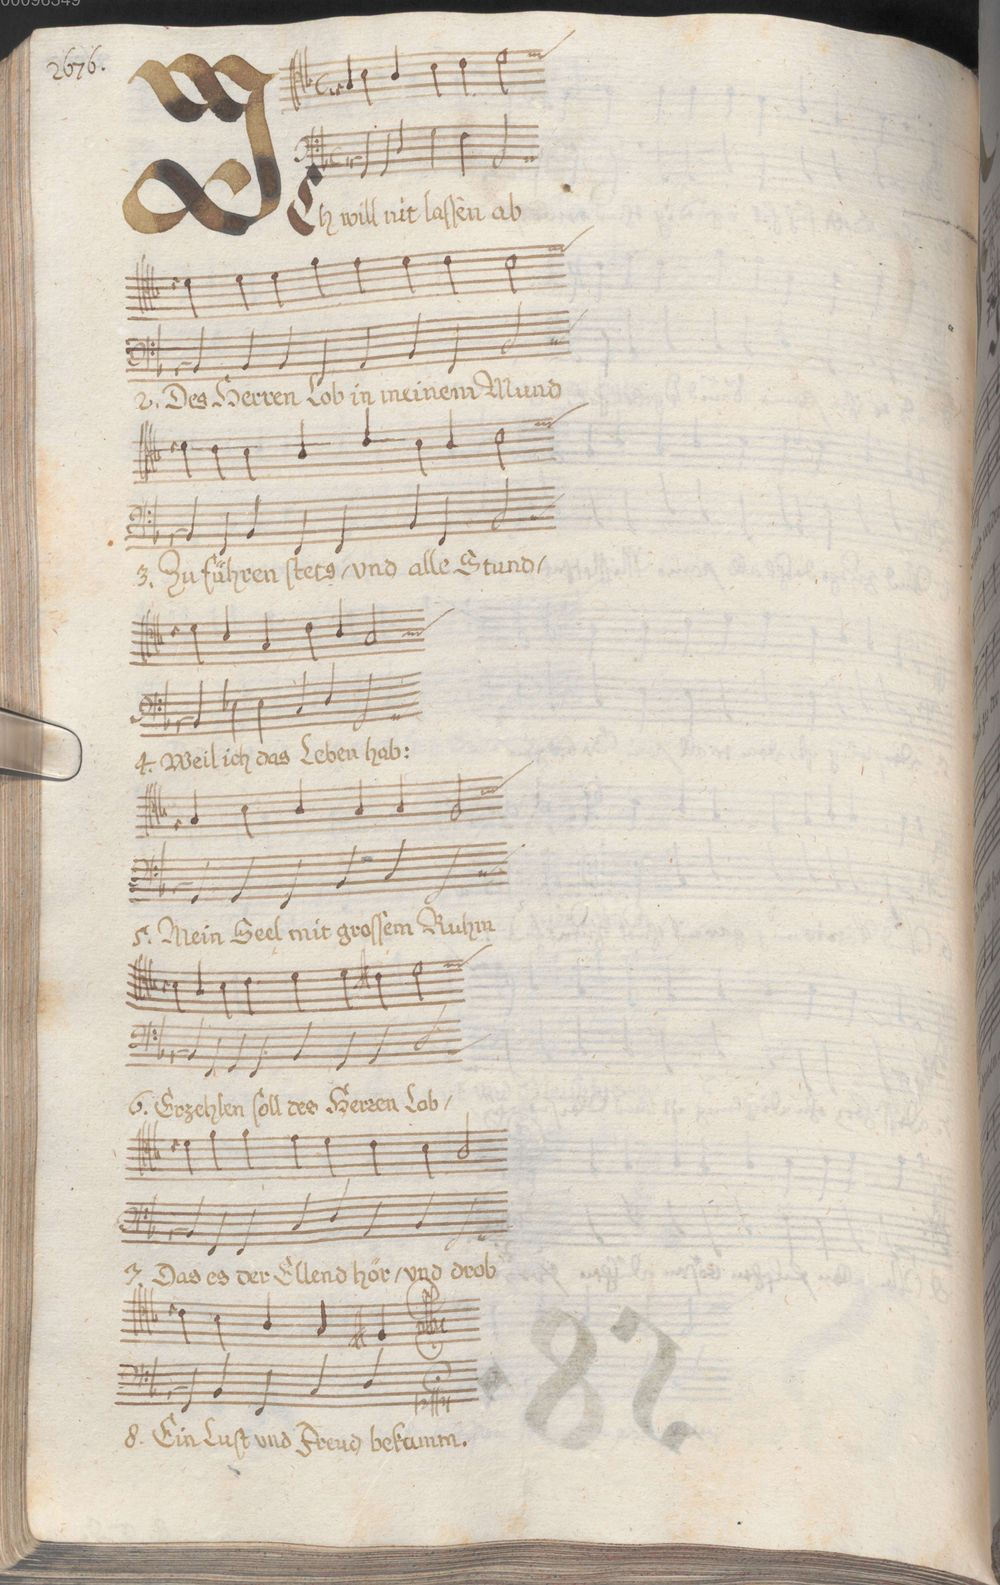 00096349
2676.
Ich will nit lassen ab
2. Des Herren Lob in meinem Mund
3. Zu führen stets / vnd alle Stund /
4. Weil ich das Leben hab:
5. Mein Seel mit grossem Ruhm
6. Erzehlen soll des Herren Lob /
7. Das es der Ellend hör / vnd drob
8. Ein Lust vnd Freud bekamm.